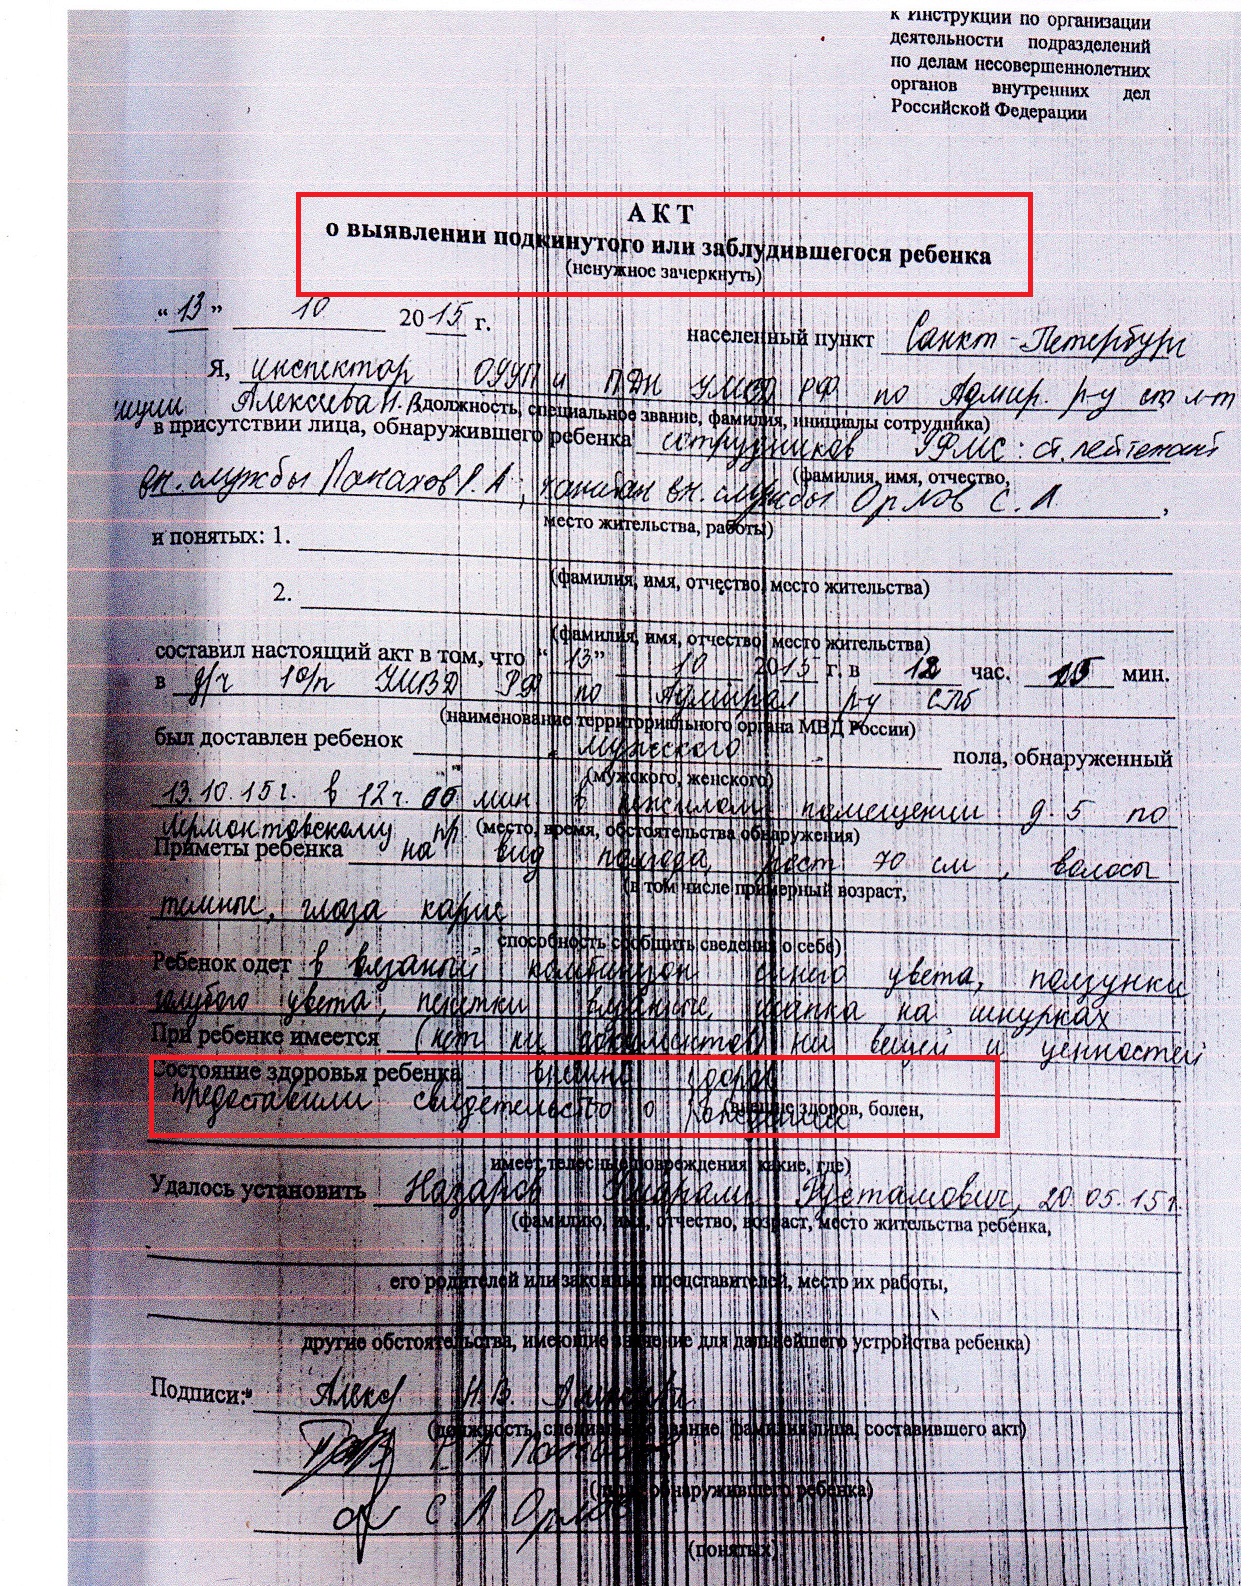 к Инструкции по организации
деятельности подразделений
по делам несовершеннолетних
органов внутренних дел
Российской Федерации
АКТ
о выявлении подкинутого или заблудившегося ребенка
(ненужное зачеркнуть)
“13” 10 2015 г.
населенный пункт Санкт-Петербург
Я, инспектор ОУУП и ПДН УМВД РФ по Адмир. р-у ст. л-т
иции Алексеева Н.В.
(должность, специальное звание, фамилия, инициалы сотрудника)
в присутствии лица, обнаружившего ребенка сотрудников УФМС: ст. лейтенант
(фамилия, имя, отчество,
вн. службы Панахов Р.А, капитан вн. службы Орлов С.А.,
место жительства, работы)
и понятых: 1.
(фамилия, имя, отчество, место жительства)
2.
(фамилия, имя, отчество, место жительства)
составил настоящий акт в том, что “13” 10 2015 г. в 12 час. мин.
в д/ч 10/п УМВД РФ по Адмирал р-у СПб
(наименование территориального органа МВД России)
был доставлен ребенок мужского пола, обнаруженный
(мужского, женского)
13.10.15 г. в 12 ч. 00 мин в помещении д. 5 по
Лермонтовскому пр
(место, время, обстоятельства обнаружения)
Приметы ребенка на вид полгода, рост 70 см, волосы
(в том числе примерный возраст,
темные, глаза карие
способность сообщить сведения о себе)
Ребенок одет в вязаный комбинзон синего цвета, ползунки
голубого цвета, пинетки вязаные, шапка на шнурках
При ребенке имеется (нет ни документов ни вещей и ценностей
Состояние здоровья ребенка внешне здоров
предоставили свидетельство о рождении
(внешне здоров, болен,
имеет телесные повреждения, какие, где)
Удалось установить Назаров Умарали Рустамович, 20.05.15 г.
(фамилию, имя, отчество, возраст, место жительства ребенка,
его родителей или законных представителей, место их работы,
другие обстоятельства, имеющие значение для дальнейшего устройства ребенка)
Подписи: Н.В.
(должность, специальное звание, фамилия лица, составившего акт)
Р А
(лица, обнаружившего ребенка)
С А Орлов
(понятых)